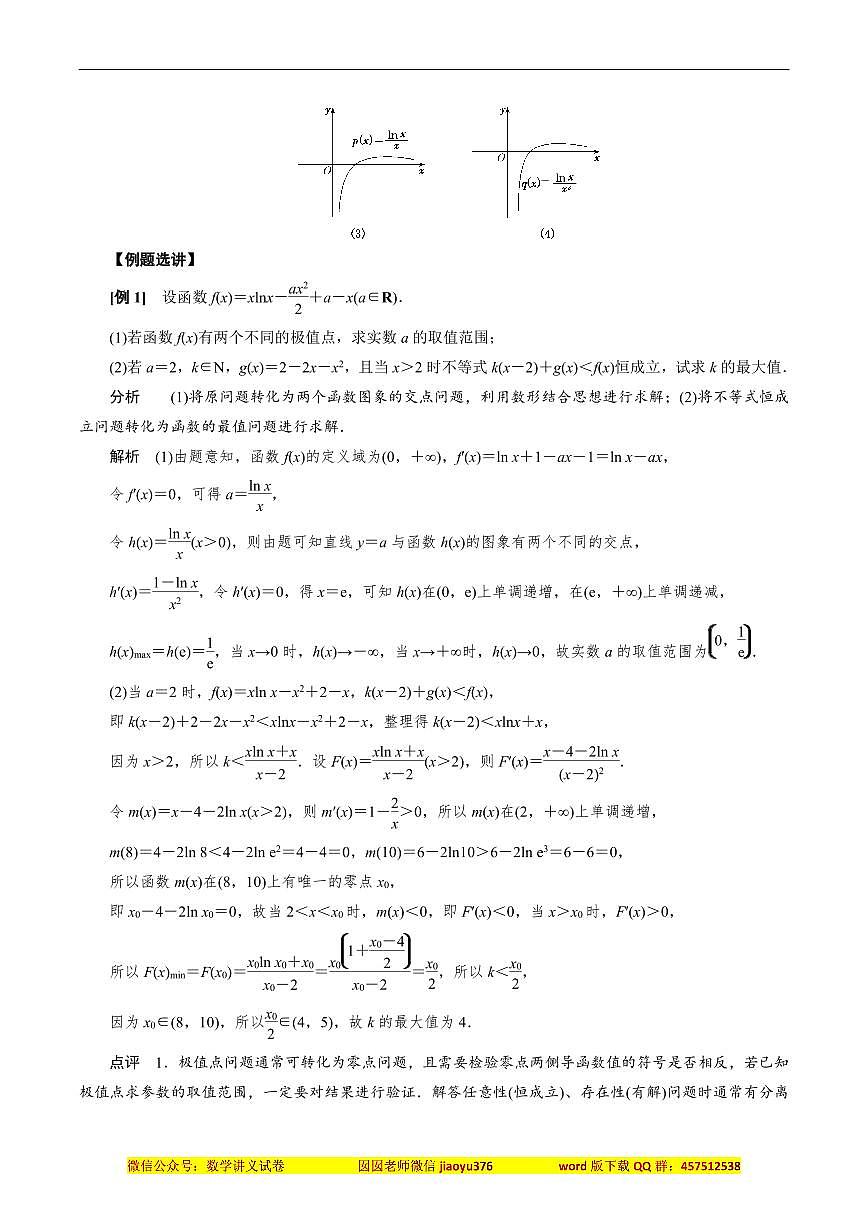 y p(x)=ln x/x O x
y O x q(x)=ln x/xᵉ
(3) (4)
【例题选讲】
[例1] 设函数 f(x)=xlnx-ax²/2+a-x(a∈R).
(1)若函数 f(x)有两个不同的极值点，求实数 a 的取值范围；
(2)若 a=2，k∈N，g(x)=2-2x-x²，且当 x>2 时不等式 k(x-2)+g(x)<f(x)恒成立，试求 k 的最大值.
分析 (1)将原问题转化为两个函数图象的交点问题，利用数形结合思想进行求解；(2)将不等式恒成
立问题转化为函数的最值问题进行求解.
解析 (1)由题意知，函数 f(x)的定义域为(0，+∞)，f′(x)=ln x+1-ax-1=ln x-ax，
令 f′(x)=0，可得 a=ln x/x，
令 h(x)=ln x/x(x>0)，则由题可知直线 y=a 与函数 h(x)的图象有两个不同的交点，
h′(x)=(1-ln x)/x²，令 h′(x)=0，得 x=e，可知 h(x)在(0，e)上单调递增，在(e，+∞)上单调递减，
h(x)max=h(e)=1/e，当 x→0 时，h(x)→-∞，当 x→+∞时，h(x)→0，故实数 a 的取值范围为(0，1/e).
(2)当 a=2 时，f(x)=xln x-x²+2-x，k(x-2)+g(x)<f(x)，
即 k(x-2)+2-2x-x²<xlnx-x²+2-x，整理得 k(x-2)<xlnx+x，
因为 x>2，所以 k<(xln x+x)/(x-2). 设 F(x)=(xln x+x)/(x-2)(x>2)，则 F′(x)=(x-4-2ln x)/(x-2)².
令 m(x)=x-4-2ln x(x>2)，则 m′(x)=1-2/x>0，所以 m(x)在(2，+∞)上单调递增，
m(8)=4-2ln 8<4-2ln e²=4-4=0，m(10)=6-2ln10>6-2ln e³=6-6=0，
所以函数 m(x)在(8，10)上有唯一的零点 x₀，
即 x₀-4-2ln x₀=0，故当 2<x<x₀时，m(x)<0，即 F′(x)<0，当 x>x₀时，F′(x)>0，
所以 F(x)min=F(x₀)=(x₀ln x₀+x₀)/(x₀-2)=x₀(1+(x₀-4)/2)/(x₀-2)=x₀/2，所以 k<x₀/2，
因为 x₀∈(8，10)，所以x₀/2∈(4，5)，故 k 的最大值为 4.
点评 1．极值点问题通常可转化为零点问题，且需要检验零点两侧导函数值的符号是否相反，若已知
极值点求参数的取值范围，一定要对结果进行验证．解答任意性(恒成立)、存在性(有解)问题时通常有分离
微信公众号：数学讲义试卷 囡囡老师微信 jiaoyu376 word 版下载 QQ 群：457512538